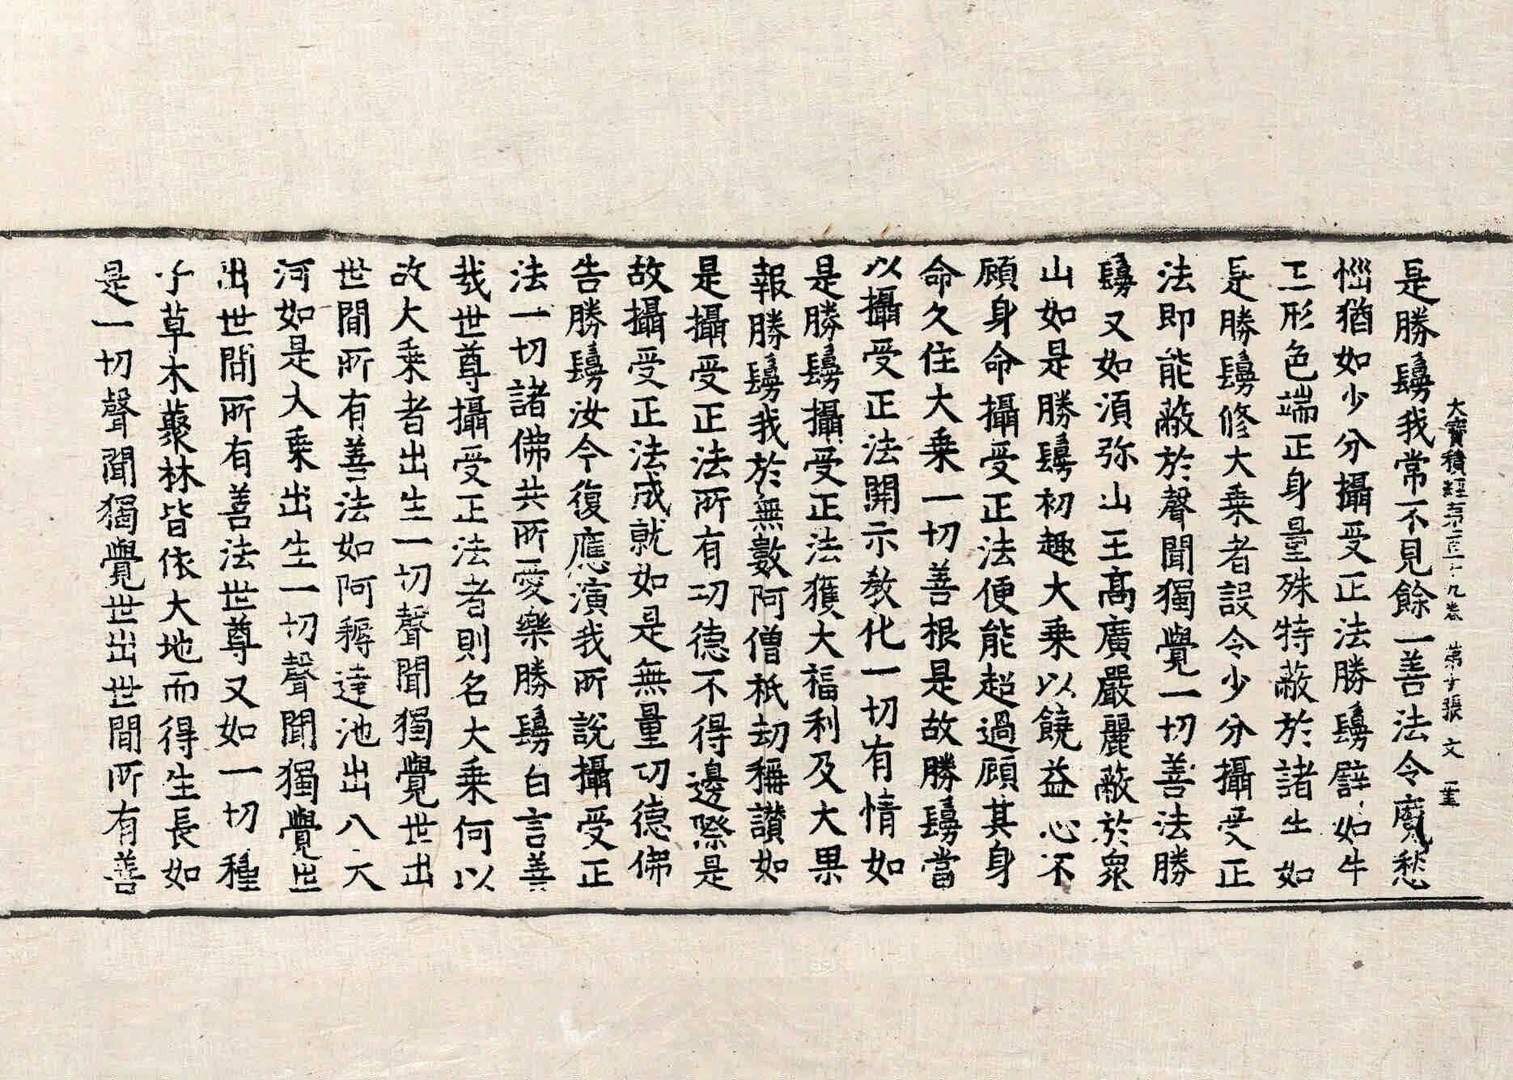 大寶積經第一百十九卷 第十張 文 一葉
是勝鬘我常不見餘一善法令魔愁
惱猶如少分攝受正法勝鬘譬如牛
王形色端正身量殊特蔽於諸牛如
是勝鬘修大乘者設令少分攝受正
法即能蔽於聲聞獨覺一切善法勝
鬘又如須弥山王高廣嚴麗蔽於衆
山如是勝鬘初趣大乘以饒益心不
顧身命攝受正法便能超過顧其身
命久住大乘一切善根是故勝鬘當
以攝受正法開示教化一切有情如
是勝鬘攝受正法獲大福利及大果
報勝鬘我於無數阿僧祇劫稱讃如
是攝受正法所有功德不得邊際是
故攝受正法成就如是無量功德佛
告勝鬘汝今復應演我所說攝受正
法一切諸佛共所愛樂勝鬘白言善
哉世尊攝受正法者則名大乘何以
故大乘者出生一切聲聞獨覺世出
世間所有善法如阿耨達池出八大
河如是大乘出生一切聲聞獨覺世
出世間所有善法世尊又如一切種
子草木藂林皆依大地而得生長如
是一切聲聞獨覺世出世間所有善